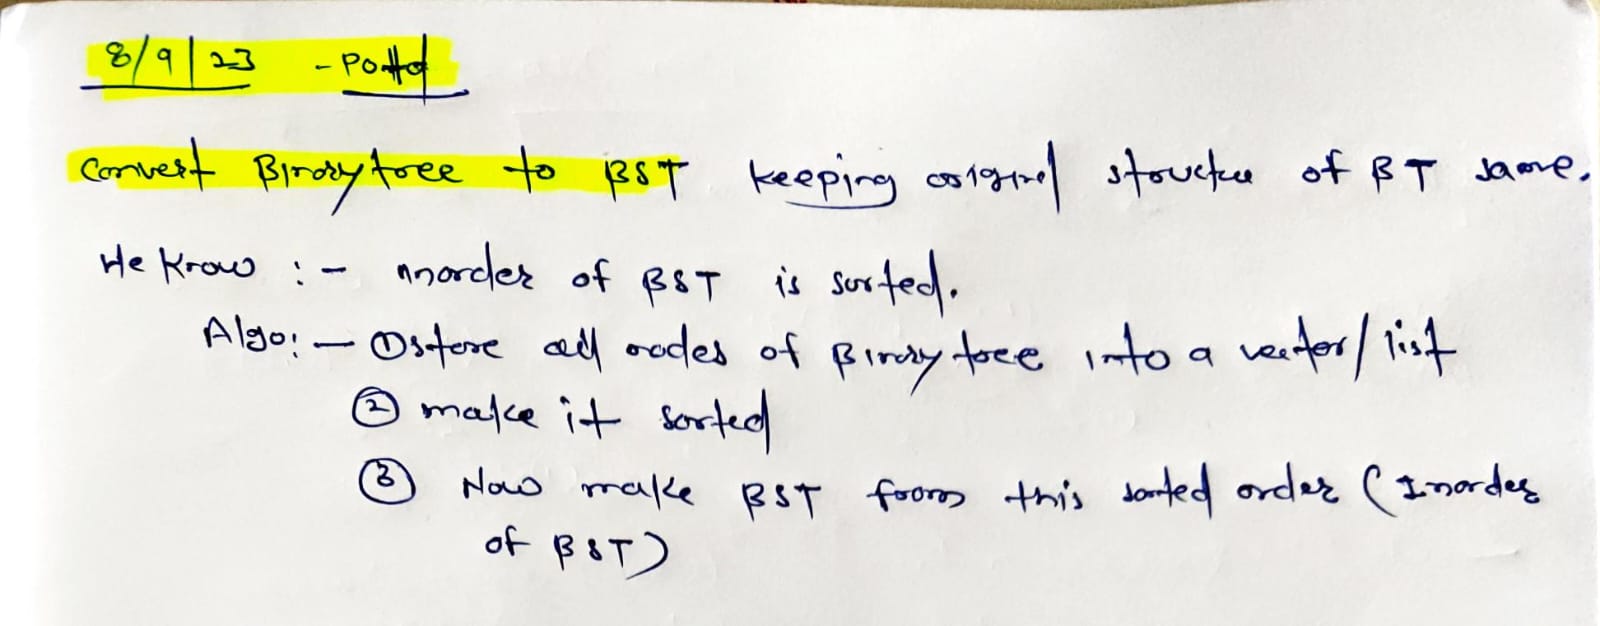 8/9/23 - Pottd
Convert Binary tree to BST keeping original structure of BT same.
We Know :- inorder of BST is sorted.
Algo:- ① store all nodes of Binary tree into a vector/list
② make it sorted
③ Now make BST from this sorted order (Inorder
of BST)